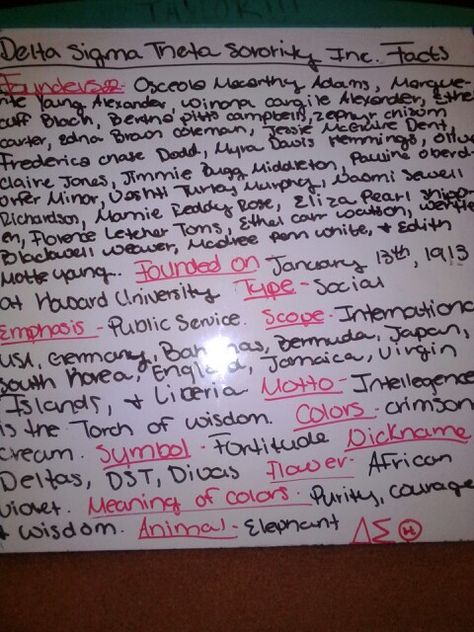 Delta Sigma Theta Sorority Inc. Facts
Founders: Osceola Mccarthy Adams, Marque-
rite Young Alexander, winona cargile Alexander, Ethel
cuff Black, Bertha pitts campbell, zephyr chisom
carter, Edna Brown coleman, Jessie McGuire Dent,
Frederica chase Dodd, Myra Davis Hemmings, Olive
Claire Jones, Jimmie Bugg Middleton, Pauline Oberdo
orfer Minor, Vashti Turley Murphy, Naomi Sewell
Richardson, Mamie Reddy Rose, Eliza Pearl Shipp
en, Florence Letcher Toms, Ethel Carr watson, wertie
Blackwell weaver, Madree Penn white, & Edith
Motte young.. Founded on January 13th, 1913
at Howard University Type - Social
Emphasis - Public Service. Scope - Internationa
USA, Germany, Bahamas, Bermuda, Japan,
South Korea, England, Jamaica, Virgin
Islands, & Liberia Motto - Intellegence
is the Torch of wisdom. Colors - crimson
cream. Symbol - Fortitude Nickname
Deltas, DST, Divas Flower - African
violet. Meaning of colors - Purity, courage
& wisdom. Animal - Elephant ΔΣΘ